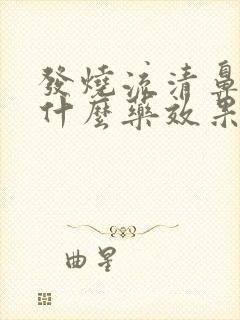 發燒流清鼻
什麼藥效果
曲星